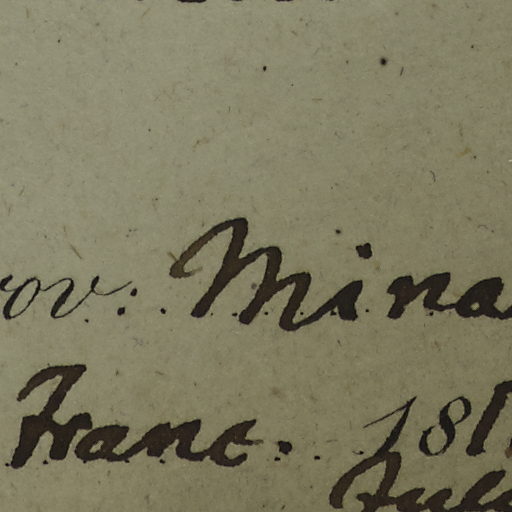 rov. Mina
Franc. 181
Jul